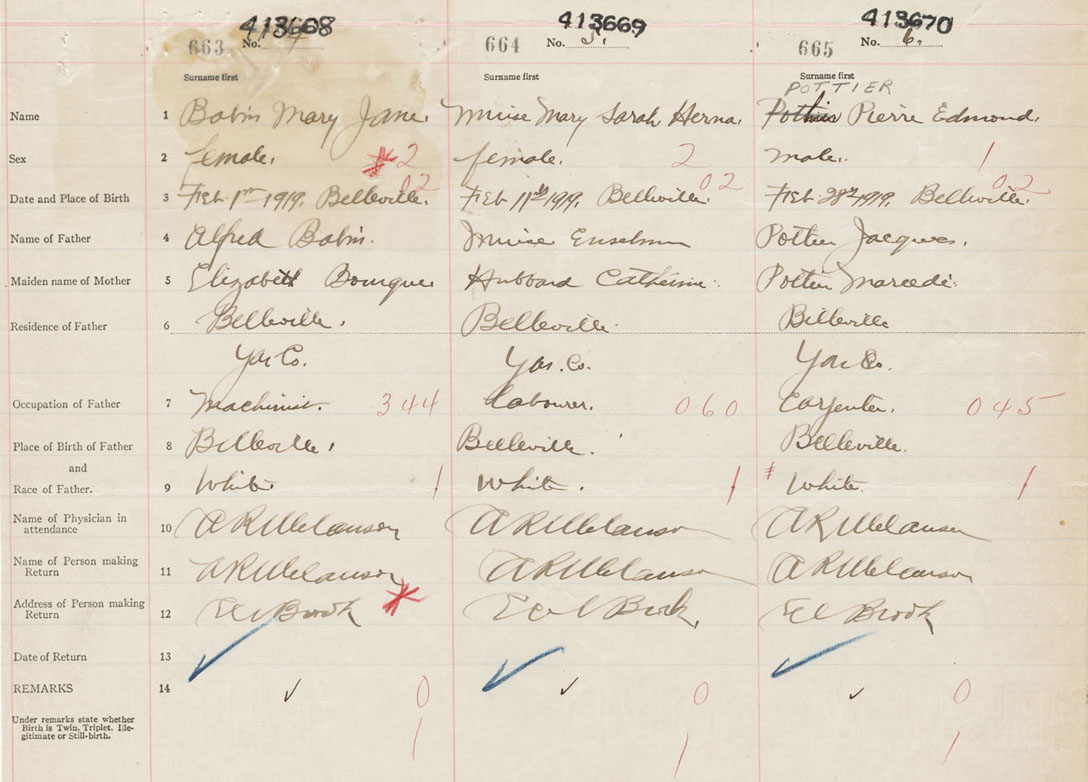 413668 413669 413670
663 No. 4 664 No. 5. 665 No. 6.
Surname first Surname first Surname first
POTTIER
Name 1 Babin Mary Jane. Muise Mary Sarah Herna. Pothier Pierre Edmond.
Sex 2 female. * 2 female. 2 male. 1
02 02 02
Date and Place of Birth 3 Feb. 1st 1919. Belleville. Feb 11th 1919. Belleville. Feb 28th 1919. Belleville.
Name of Father 4 Alfred Babin. Muise Enselm Pottier Jacques.
Maiden name of Mother 5 Elizabeth Bourque Hubbard Catherine. Pottier
Residence of Father 6 Belleville. Belleville. Belleville
Yar Co. Yar. Co. Yar Co.
Occupation of Father 7 Machinist. 344 Labourer. 060 Carpenter. 045
Place of Birth of Father 8 Belleville. Belleville. Belleville.
and
Race of Father. 9 White. 1 White. 1 White. 1
Name of Physician in attendance 10 A R Melanson A R Melanson A R Melanson
Name of Person making Return 11 A R Melanson A R Melanson A R Melanson
Address of Person making Return 12 Eel Brook * Eel Brook. Eel Brook
Date of Return 13
REMARKS 14 ✓ 0 ✓ 0 ✓ 0
Under remarks state whether
Birth is Twin, Triplet, Ille-
gitimate or Still-birth. 1 1 1